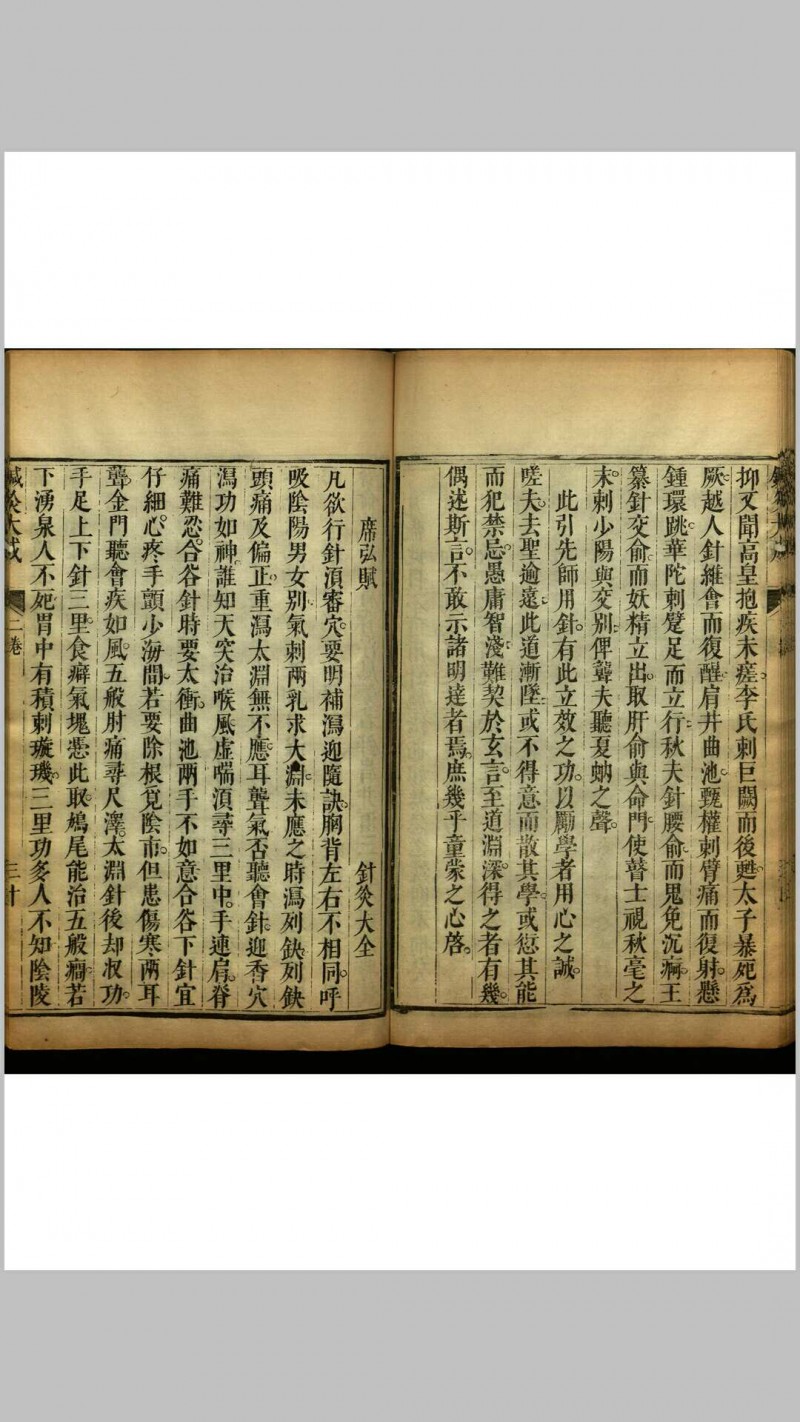 抑又聞高皇抱疾未瘥。李氏刺巨闕而後甦太子暴死爲
厥越人針維會而復醒。肩井曲池甄權刺臂痛而復射。懸
鍾環跳華陀刺躄足而立行。秋夫針腰俞而鬼免沉痾。王
纂針交俞而妖精立出。取肝俞與命門使瞽士視秋毫之
末。刺少陽與交別俾聾夫聽夏蚋之聲。
此引先師用針。有此立效之功。以勵學者用心之誠。
嗟夫。去聖逾遠此道漸墜。或不得意而散其學。或愆其能
而犯禁忌。愚庸智淺難契於玄言。至道淵深。得之者有幾。
偶述斯言。不敢示諸明達者焉。庶幾乎童蒙之心啓。
席弘賦 針灸大全
凡欲行針湏審穴。要明補瀉迎隨訣。胸背左右不相同。呼
吸陰陽男女别。氣刺兩乳求大淵。未應之時瀉列缺。列缺
頭痛及偏正。重瀉太淵無不應。耳聾氣否聽會針。迎香穴
瀉功如神。誰知天突治喉風。虛喘湏尋三里中。手連肩脊
痛難忍。合谷針時要太衝。曲池兩手不如意。合谷下針宜
仔細。心疼手顫少海間。若要除根覓陰市。但患傷寒兩耳
聾。金門聽會疾如風。五般肘痛尋尺澤。太淵針後却収功。
手足上下針三里。食癖氣塊憑此取。鳩尾能治五般癇。若
下湧泉人不死。胃中有積刺璇璣。三里功多人不知。陰陵
鍼灸大成 二卷 三十